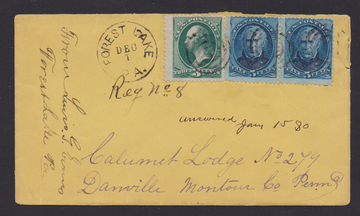 FOREST LAKE
DEC
1
PA.
Reg No 8
Answered Jan 15 80
Calumet Lodge No 279
Danville Montour Co Penna
From
Forest Lake Pa